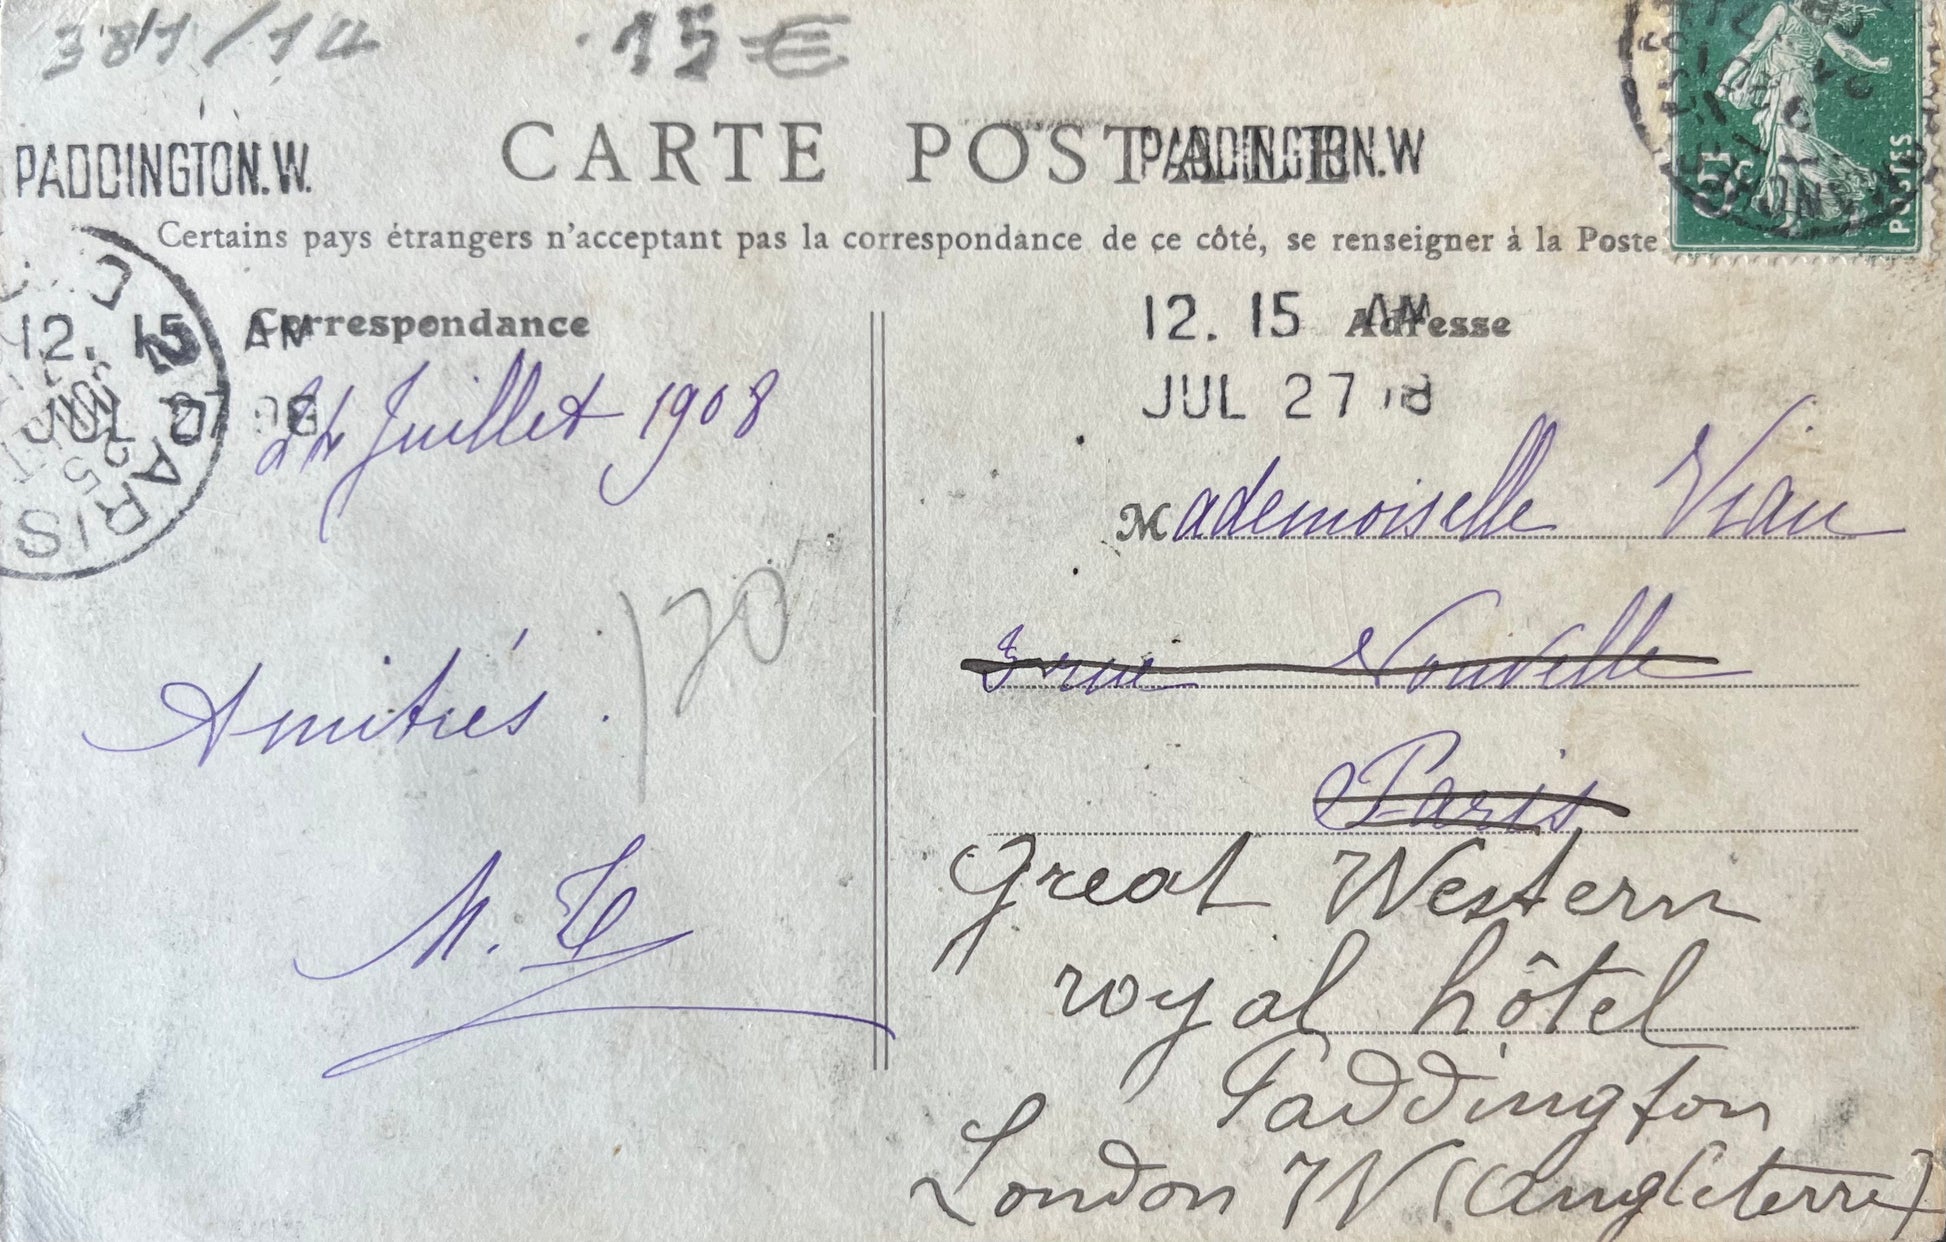 381/14 15€
CARTE POSTALE
PADDINGTON.W. PADDINGTON.W
Certains pays étrangers n'acceptant pas la correspondance de ce côté, se renseigner à la Poste
5c POSTES
Correspondance
Adresse
12. 15 AM
12. 15 AM
JUL 27 08
PARIS
25
24 Juillet 1908
Amitiés.
120
Mademoiselle Viau
3 rue Nouvelle
Paris
Great Western
royal hôtel
Paddington
London W (Angleterre)